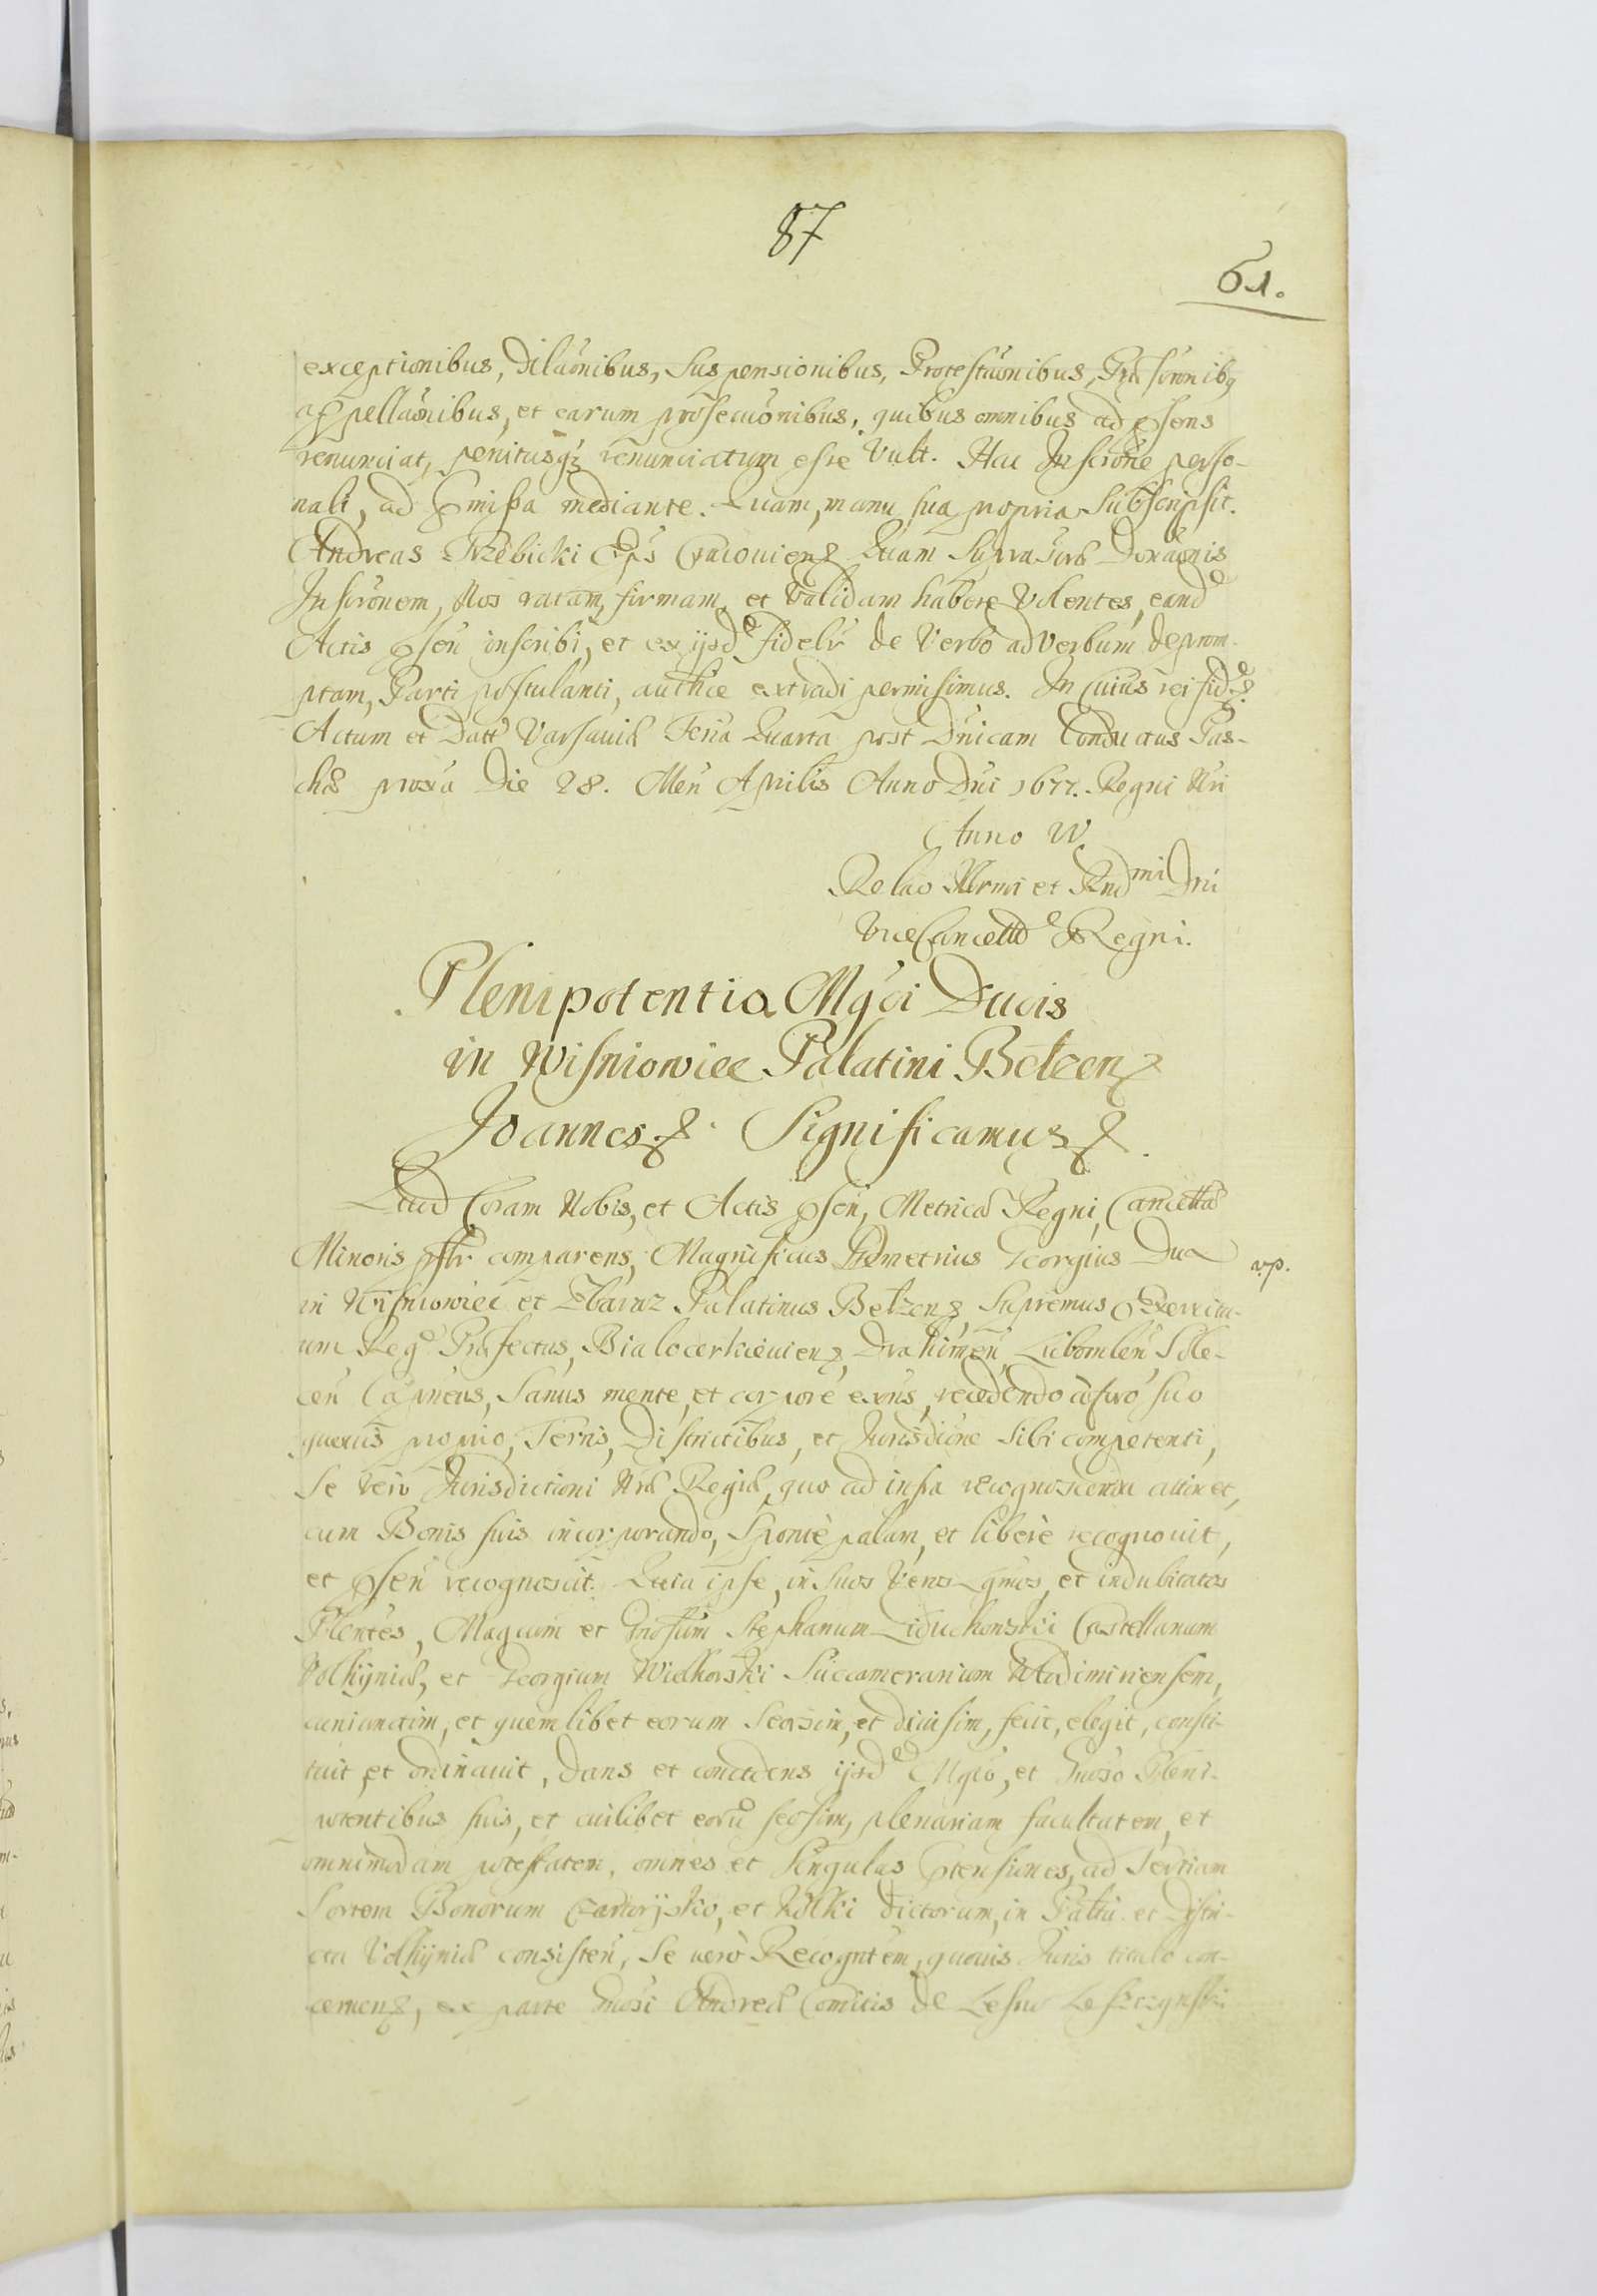 87
61.
exceptionibus, Dilaõnibus, Suspensionibus, Protestaõnibus, Præscrõnibq
appellaõnibus, et earum prosecuõnibus, quibus omnibus ad psens
renunciat, penitusq3 renunciatum esse vult. Hac Inscrõne perso-
nali, ad pmissa mediante. Quam, manu sua propria Subscripsit.
Andreas Trzebicki Epũs Cracouien. Quam Suprascrip Donaõnis
Inscrõnem, Nos ratam, firmam, et validam habere Volentes, eandẽ
Actis psen inscribi, et ex ijsdẽ fidelr de Verbo ad Verbum deprom-
ptam, Parti postulanti, authce extradi permisimus. In cuius rei fidẽ
Actum et Datt Varsauiæ Feria Quarta post Dnicam Conductus Pas-
chæ proxa Die 28. Men Aprilis Anno Dni 1677. Regni Nri
Anno IV
Relao Illrmi et Rndmi Dni
ViceCancellr Regni.
Plenipotentia Mgci Ducis
in Wisniowiec Palatini Belzen
Joannes. Significamus.
Quod Coram Nobis, et Actis psen, Metrices Regni, Cancellæ
Minoris psslr comparens, Magnificus Demetrius Georgius Dux
vp.
in Wisniowiec et Zbaraz Palatinus Belzen, Supremus Exercitu-
um Regð Præfectus, Bialocerkieuien, Drahimen, Lubomlen, Sole-
cen Capneus, Sanus mente, et corpore exñs, recedendo à foro suo
quouis proprio, Terris, Districtibus, et Jurisdione sibi competenti,
se vero Jurisdictioni Nræ Regiæ, quo ad infra recognoscenda attinet,
cum Bonis suis incorporando, Sponte palam, et liberè recognouit,
et psen recognoscit. Quia ipse, in suos Veros Lgmos, et indubitatos
Plentes, Magcum et Gnosum Stephanum Leduchowski Castellanum
Volhyniæ, et Georgium Wielhorski Succamerarium Wlodimiriensem,
coniunctim, et quemlibet eorum Seorsim, et diuisim, fecit, elegit, consti-
tuit et ordinauit, dans et concedens ijsdẽ Mgco, et Gnoso Pleni-
potentibus suis, et cuilibet eorũ seorsim, plenariam facultatem, et
omnimodam potestatem, omnes et Singulas Ptensiones, ad Tertiam
Sortem Bonorum Czartoryjsko, et Kolki dictorum, in Paltu et Distri-
ctu Volhyniæ consisten, Se verò Recogntem, quouis Juris titulo con-
cernen, ex parte Gnosi Andreæ Comitis de Lesno Leszczynski